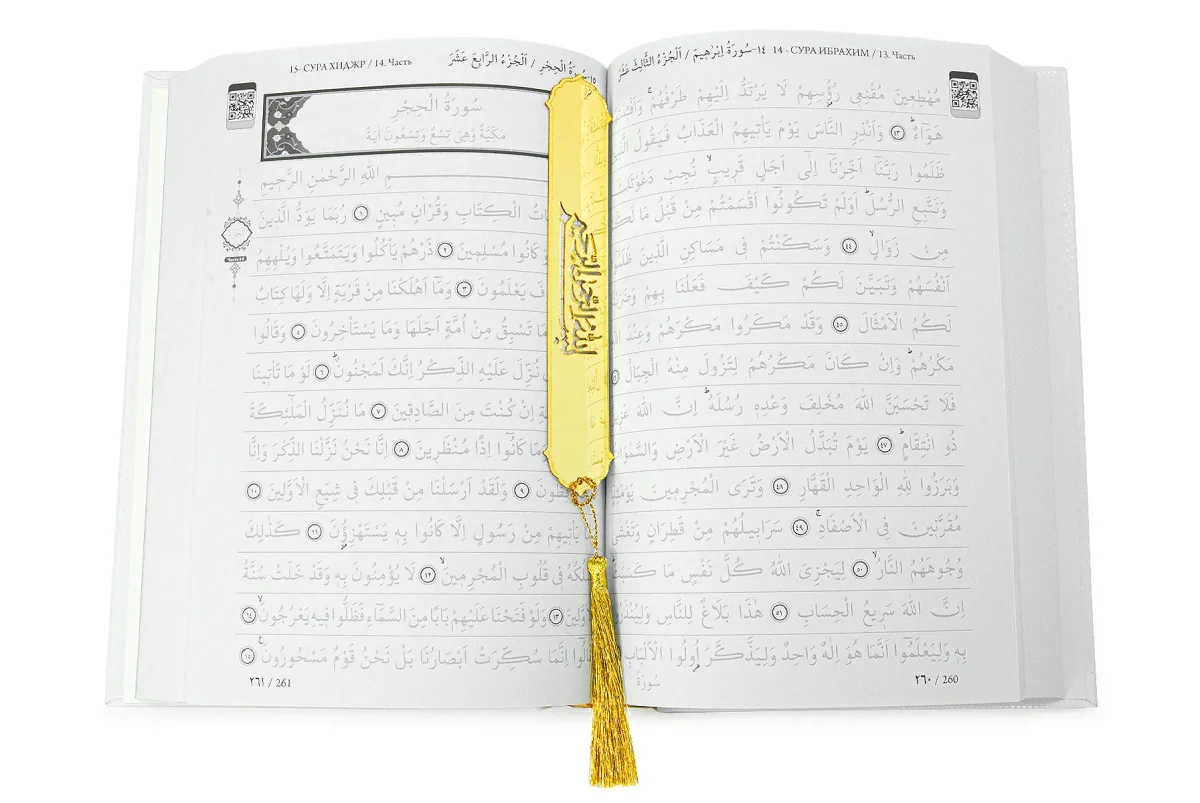 ١٤-سُورَةُ اِبْرٰهِيمَ / اَلْجُزْءُ الثَّالِثَ عَشَرَ 14 - СУРА ИБРАХИМ / 13. Часть
مُهْطِعِينَ مُقْنِعِى رُؤُسِهِمْ لَا يَرْتَدُّ اِلَيْهِمْ طَرْفُهُمْ
هَوَاءٌ ﴿٤٣﴾ وَاَنْذِرِ النَّاسَ يَوْمَ يَأْتِيهِمُ الْعَذَابُ فَيَقُولُ
ظَلَمُوا رَبَّنَا اَخِّرْنَا اِلٰٓى اَجَلٍ قَرِيبٍ نُجِبْ
وَنَتَّبِعِ الرُّسُلَ اَوَلَمْ تَكُونُوا اَقْسَمْتُمْ مِنْ قَبْلُ مَا
مِنْ زَوَالٍ ﴿٤٤﴾ وَسَكَنْتُمْ فِى مَسَاكِنِ الَّذِينَ
اَنْفُسَهُمْ وَتَبَيَّنَ لَكُمْ كَيْفَ فَعَلْنَا بِهِمْ
لَكُمُ الْاَمْثَالَ ﴿٤٥﴾ وَقَدْ مَكَرُوا مَكْرَهُمْ وَعِنْدَ
مَكْرُهُمْ وَاِنْ كَانَ مَكْرُهُمْ لِتَزُولَ مِنْهُ الْجِبَالُ
فَلَا تَحْسَبَنَّ اللّٰهَ مُخْلِفَ وَعْدِهِ رُسُلَهُ اِنَّ اللّٰهَ
ذُو انْتِقَامٍ ﴿٤٧﴾ يَوْمَ تُبَدَّلُ الْاَرْضُ غَيْرَ الْاَرْضِ
وَبَرَزُوا لِلّٰهِ الْوَاحِدِ الْقَهَّارِ ﴿٤٨﴾ وَتَرَى الْمُجْرِمِينَ
مُقَرَّنِينَ فِى الْاَصْفَادِ ﴿٤٩﴾ سَرَابِيلُهُمْ مِنْ قَطِرَانٍ
وُجُوهَهُمُ النَّارُ ﴿٥٠﴾ لِيَجْزِىَ اللّٰهُ كُلَّ نَفْسٍ مَا
اِنَّ اللّٰهَ سَرِيعُ الْحِسَابِ ﴿٥١﴾ هٰذَا بَلَاغٌ لِلنَّاسِ
بِهِ وَلِيَعْلَمُوا اَنَّمَا هُوَ اِلٰهٌ وَاحِدٌ وَلِيَذَّكَّرَ اُولُوا الْاَلْبَابِ
سُورَةُ
٢٦٠ / 260
15- СУРА ХИДЖР / 14. Часть سُورَةُ الْحِجْرِ / اَلْجُزْءُ الرَّابِعَ عَشَرَ
سُورَةُ الْحِجْرِ
مَكِّيَّةٌ وَهِىَ تِسْعٌ وَتِسْعُونَ اٰيَةً
اللّٰهِ الرَّحْمٰنِ الرَّحِيمِ
الْكِتَابِ وَقُرْاٰنٍ مُبِينٍ ﴿١﴾ رُبَمَا يَوَدُّ الَّذِينَ
كَانُوا مُسْلِمِينَ ﴿٢﴾ ذَرْهُمْ يَأْكُلُوا وَيَتَمَتَّعُوا وَيُلْهِهِمُ
يَعْلَمُونَ ﴿٣﴾ وَمَا اَهْلَكْنَا مِنْ قَرْيَةٍ اِلَّا وَلَهَا كِتَابٌ
تَسْبِقُ مِنْ اُمَّةٍ اَجَلَهَا وَمَا يَسْتَأْخِرُونَ ﴿٥﴾ وَقَالُوا
نُزِّلَ عَلَيْهِ الذِّكْرُ اِنَّكَ لَمَجْنُونٌ ﴿٦﴾ لَوْ مَا تَأْتِينَا
اِنْ كُنْتَ مِنَ الصَّادِقِينَ ﴿٧﴾ مَا نُنَزِّلُ الْمَلٰٓئِكَةَ
كَانُوا اِذًا مُنْظَرِينَ ﴿٨﴾ اِنَّا نَحْنُ نَزَّلْنَا الذِّكْرَ وَاِنَّا
﴿٩﴾ وَلَقَدْ اَرْسَلْنَا مِنْ قَبْلِكَ فِى شِيَعِ الْاَوَّلِينَ ﴿١٠﴾
يَأْتِيهِمْ مِنْ رَسُولٍ اِلَّا كَانُوا بِهِ يَسْتَهْزِؤُنَ ﴿١١﴾ كَذٰلِكَ
فِى قُلُوبِ الْمُجْرِمِينَ ﴿١٢﴾ لَا يُؤْمِنُونَ بِهِ وَقَدْ خَلَتْ سُنَّةُ
﴿١٣﴾ وَلَوْ فَتَحْنَا عَلَيْهِمْ بَابًا مِنَ السَّمَاءِ فَظَلُّوا فِيهِ يَعْرُجُونَ ﴿١٤﴾
اِنَّمَا سُكِّرَتْ اَبْصَارُنَا بَلْ نَحْنُ قَوْمٌ مَسْحُورُونَ ﴿١٥﴾
٢٦١ / 261
بسم الله الرحمن الرحيم